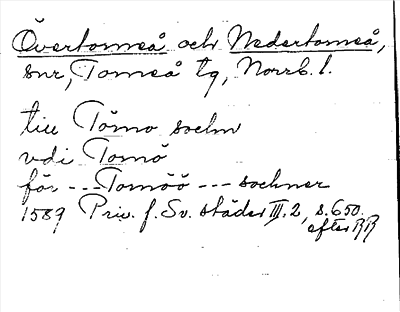 Övertorneå och Nedertorneå,
snr, Torneå tg, Norrb. l.
till Tårno sochn
vdi Tornö
för --- Tornöö --- sochner
1589 Priv. f. Sv. städer III.2, s. 650.
efter RR